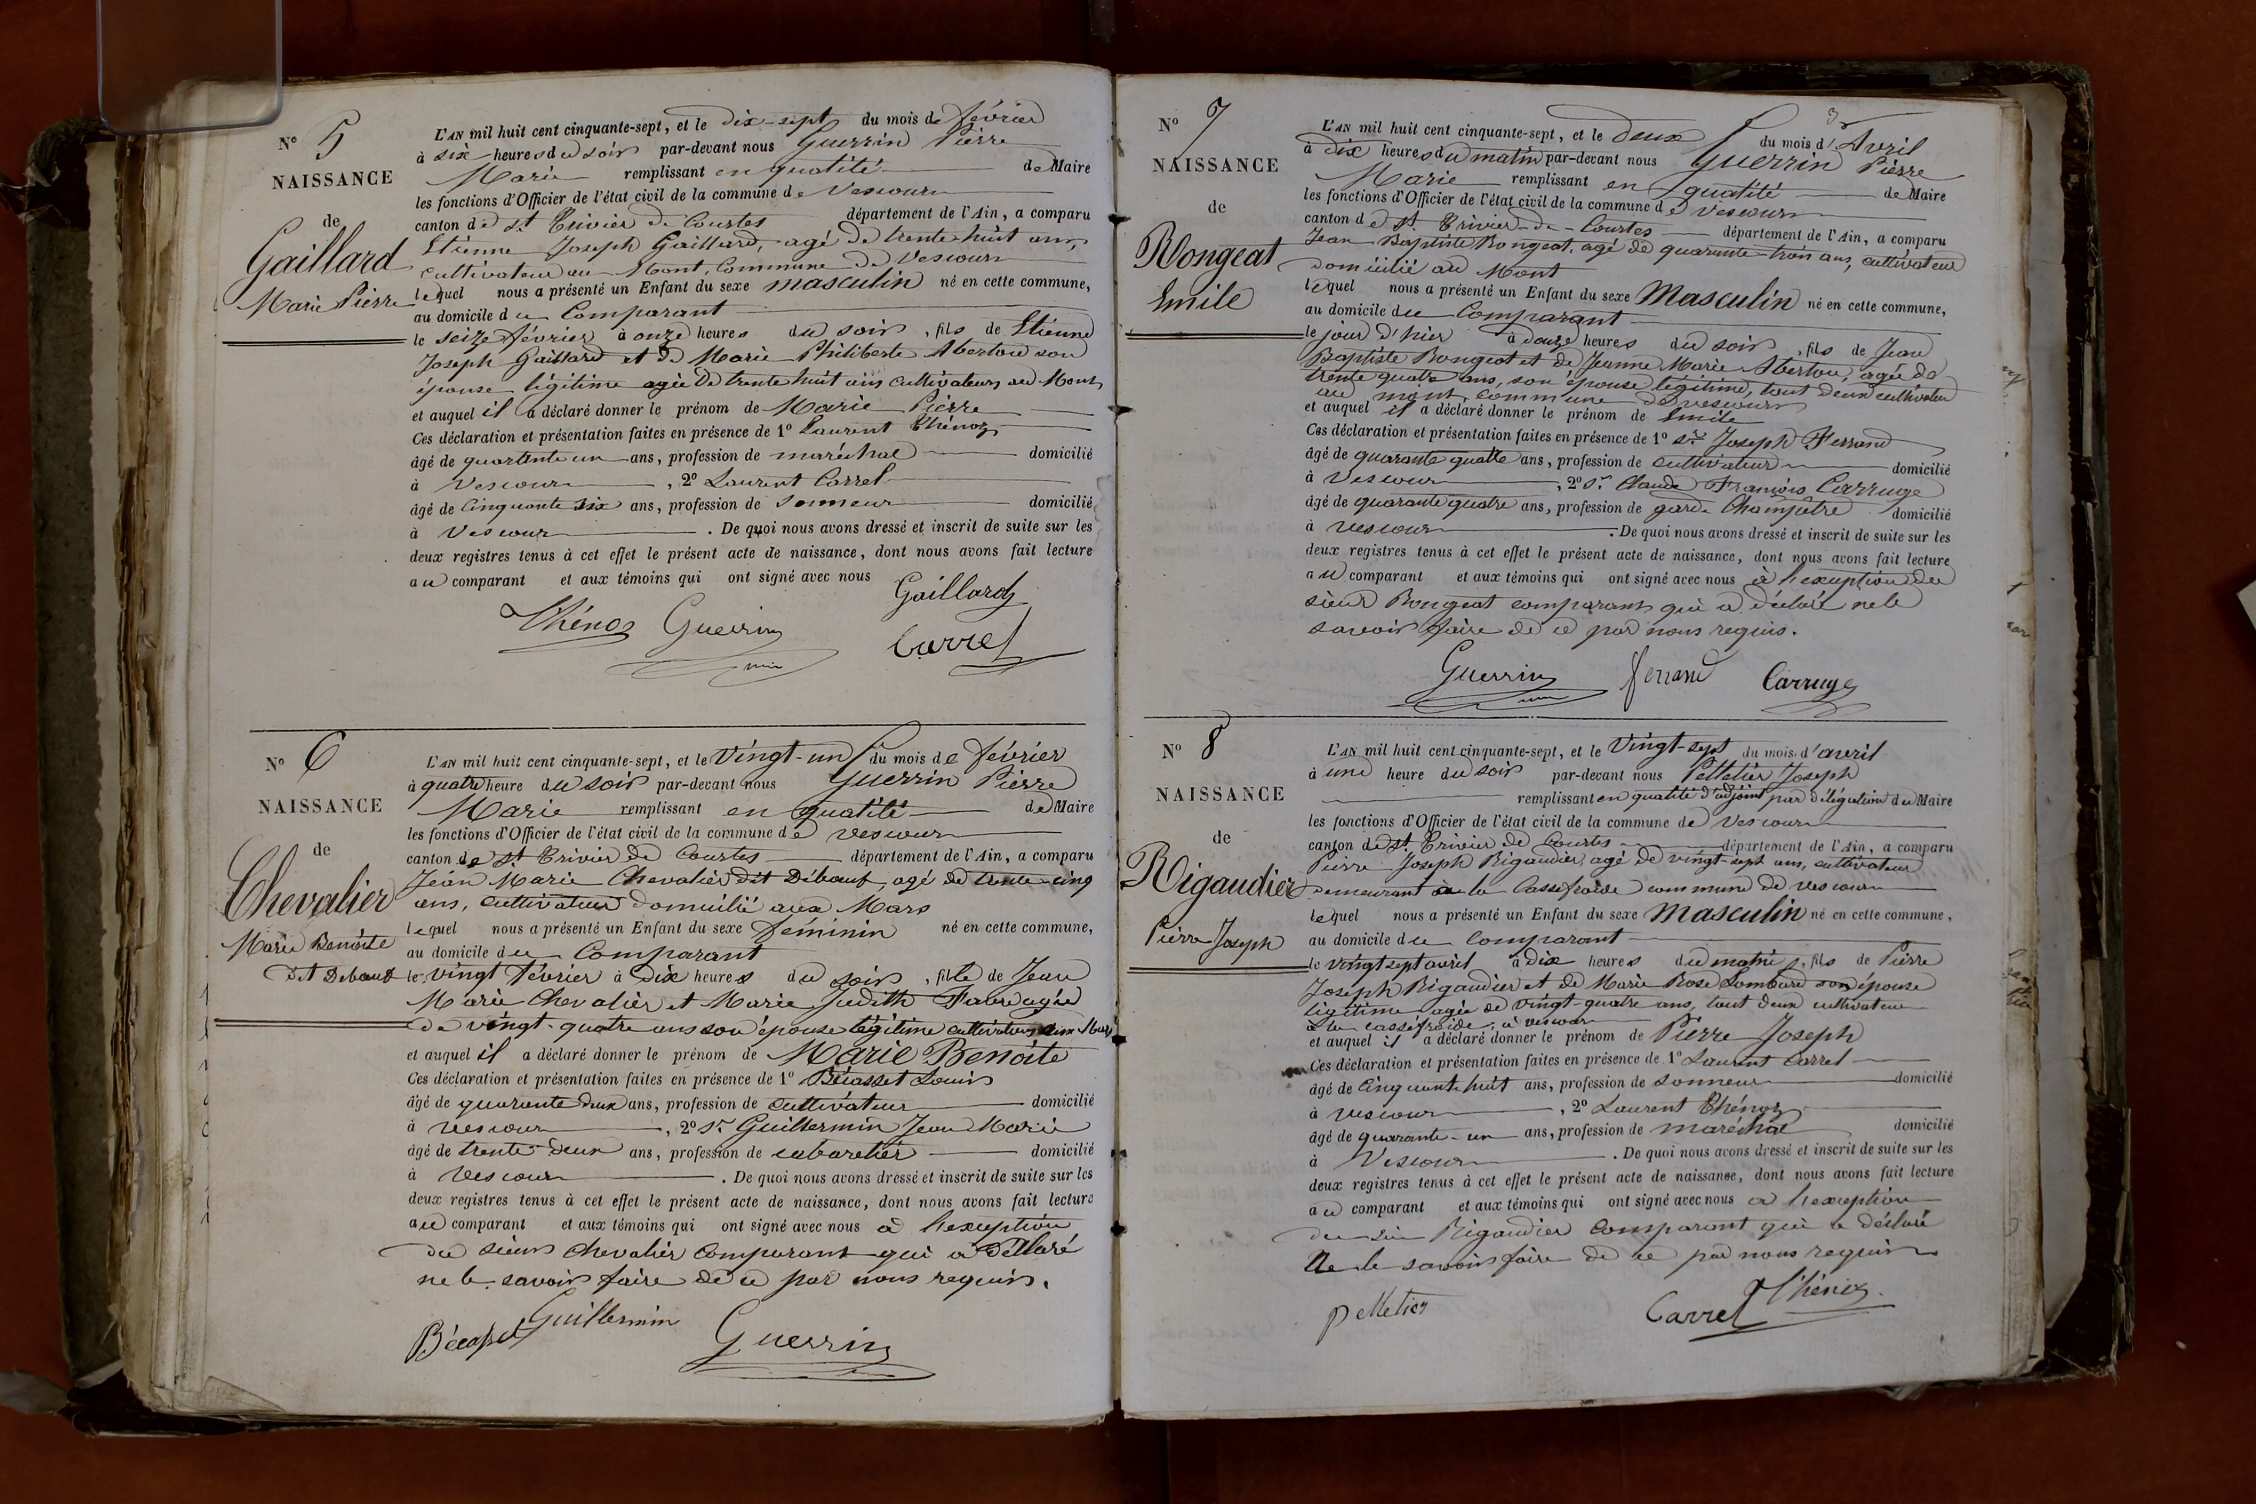 N° 5
NAISSANCE
de
Gaillard
Marie Pierre
L'AN mil huit cent cinquante-sept, et le dix-sept du mois de février
à six heures du soir par-devant nous Guerrin Pierre
Marie remplissant en qualité de Maire
les fonctions d'Officier de l'état civil de la commune de Vescours
canton de St Trivier de Courtes département de l'Ain, a comparu
Etienne Joseph Gaillard, agé de trente huit ans,
cultivateur au Mont, Commune de Vescours
lequel nous a présenté un Enfant du sexe masculin né en cette commune,
au domicile du Comparant
le seize février à onze heures du soir, fils de Etienne
Joseph Gaillard et de Marie Philiberte Aberton son
épouse légitime agée de trente huit ans cultivateurs au Mont
et auquel il a déclaré donner le prénom de Marie Pierre
Ces déclaration et présentation faites en présence de 1° Laurent Thénoz
âgé de quarante un ans, profession de maréchal domicilié
à Vescours, 2° Laurent Carrel
âgé de Cinquante six ans, profession de Sonneur domicilié
à Vescours. De quoi nous avons dressé et inscrit de suite sur les
deux registres tenus à cet effet le présent acte de naissance, dont nous avons fait lecture
au comparant et aux témoins qui ont signé avec nous
Gaillard
Thénoz Guerrin Carrel
N° 6
NAISSANCE
de
Chevalier
Marie Benoite
dit Debeauf
L'AN mil huit cent cinquante-sept, et le Vingt-un du mois de février
à quatre heure du soir par-devant nous Guerrin Pierre
Marie remplissant en qualité de Maire
les fonctions d'Officier de l'état civil de la commune de Vescours
canton de St Trivier de Courtes département de l'Ain, a comparu
Jean Marie Chevalier dit Débœuf, agé de trente-cinq
ans, cultivateur domicilié aux Mars
lequel nous a présenté un Enfant du sexe féminin né en cette commune,
au domicile du Comparant
le vingt février à dix heures du soir, fille de Jean
Marie Chevalier et Marie Judith Favre agée
de vingt-quatre ans son épouse légitime cultivateurs aux Mars
et auquel il a déclaré donner le prénom de Marie Benoite
Ces déclaration et présentation faites en présence de 1° Bécasset Louis
âgé de quarante deux ans, profession de cultivateur domicilié
à Vescours, 2° Sr Guillermin Jean Marie
âgé de trente-deux ans, profession de cabaretier domicilié
à Vescours. De quoi nous avons dressé et inscrit de suite sur les
deux registres tenus à cet effet le présent acte de naissance, dont nous avons fait lecture
au comparant et aux témoins qui ont signé avec nous à l'exception
du sieur Chevalier Comparant qui a déclaré
ne le savoir faire de ce par nous requis.
Bécasset Guillermin Guerrin
3
N° 7
NAISSANCE
de
Rongeat
Emile
L'AN mil huit cent cinquante-sept, et le deux du mois d'Avril
à dix heures du matin par-devant nous Guerrin Pierre
Marie remplissant en qualité de Maire
les fonctions d'Officier de l'état civil de la commune de Vescours
canton de St Trivier-de-Courtes département de l'Ain, a comparu
Jean Baptiste Rongeat, agé de quarante-trois ans, cultivateur
domicilié au Mont
lequel nous a présenté un Enfant du sexe Masculin né en cette commune,
au domicile du Comparant
le jour d'hier à douze heures du soir, fils de Jean
Baptiste Rongeat et de Jeanne Marie Aberton, agée de
trente quatre ans, son épouse légitime, tout deux cultivateur
au mont commune de Vescours
et auquel il a déclaré donner le prénom de Emile
Ces déclaration et présentation faites en présence de 1° Sr Joseph Ferrand
âgé de quarante quatre ans, profession de cultivateur domicilié
à Vescours, 2° Sr Claude François Carruge
âgé de quarante quatre ans, profession de garde Champêtre domicilié
à Vescours. De quoi nous avons dressé et inscrit de suite sur les
deux registres tenus à cet effet le présent acte de naissance, dont nous avons fait lecture
au comparant et aux témoins qui ont signé avec nous à l'exception du
sieur Rongeat comparant qui a déclaré ne le
savoir faire de ce par nous requis.
Guerrin Ferrand Carruge
N° 8
NAISSANCE
de
Rigaudier
Pierre Joseph
L'AN mil huit cent cinquante-sept, et le Vingt-sept du mois d'avril
à une heure du soir par-devant nous Pelletier Joseph
remplissant en qualité d'adjoint par délégation du Maire
les fonctions d'Officier de l'état civil de la commune de Vescours
canton de St Trivier de Courtes département de l'Ain, a comparu
Pierre Joseph Rigaudier agé de vingt-sept ans, cultivateur
demeurant à la Cassefroide commune de Vescours
lequel nous a présenté un Enfant du sexe Masculin né en cette commune,
au domicile du Comparant
le vingt sept avril à dix heures du matin, fils de Pierre
Joseph Rigaudier et de Marie Rose Lombard son épouse
légitime agée de vingt-quatre ans, tout deux cultivateur
à la cassefroide, à vescours
et auquel il a déclaré donner le prénom de Pierre Joseph
Ces déclaration et présentation faites en présence de 1° Laurent Carrel
âgé de Cinquante huit ans, profession de sonneur domicilié
à Vescours, 2° Laurent Thénoz
âgé de quarante-un ans, profession de maréchal domicilié
à Vescours. De quoi nous avons dressé et inscrit de suite sur les
deux registres tenus à cet effet le présent acte de naissance, dont nous avons fait lecture
au comparant et aux témoins qui ont signé avec nous à l'exception
du sieur Rigaudier Comparant qui a déclaré
Ne le savoir faire de ce par nous requis
Pelletier Carrel Thénoz